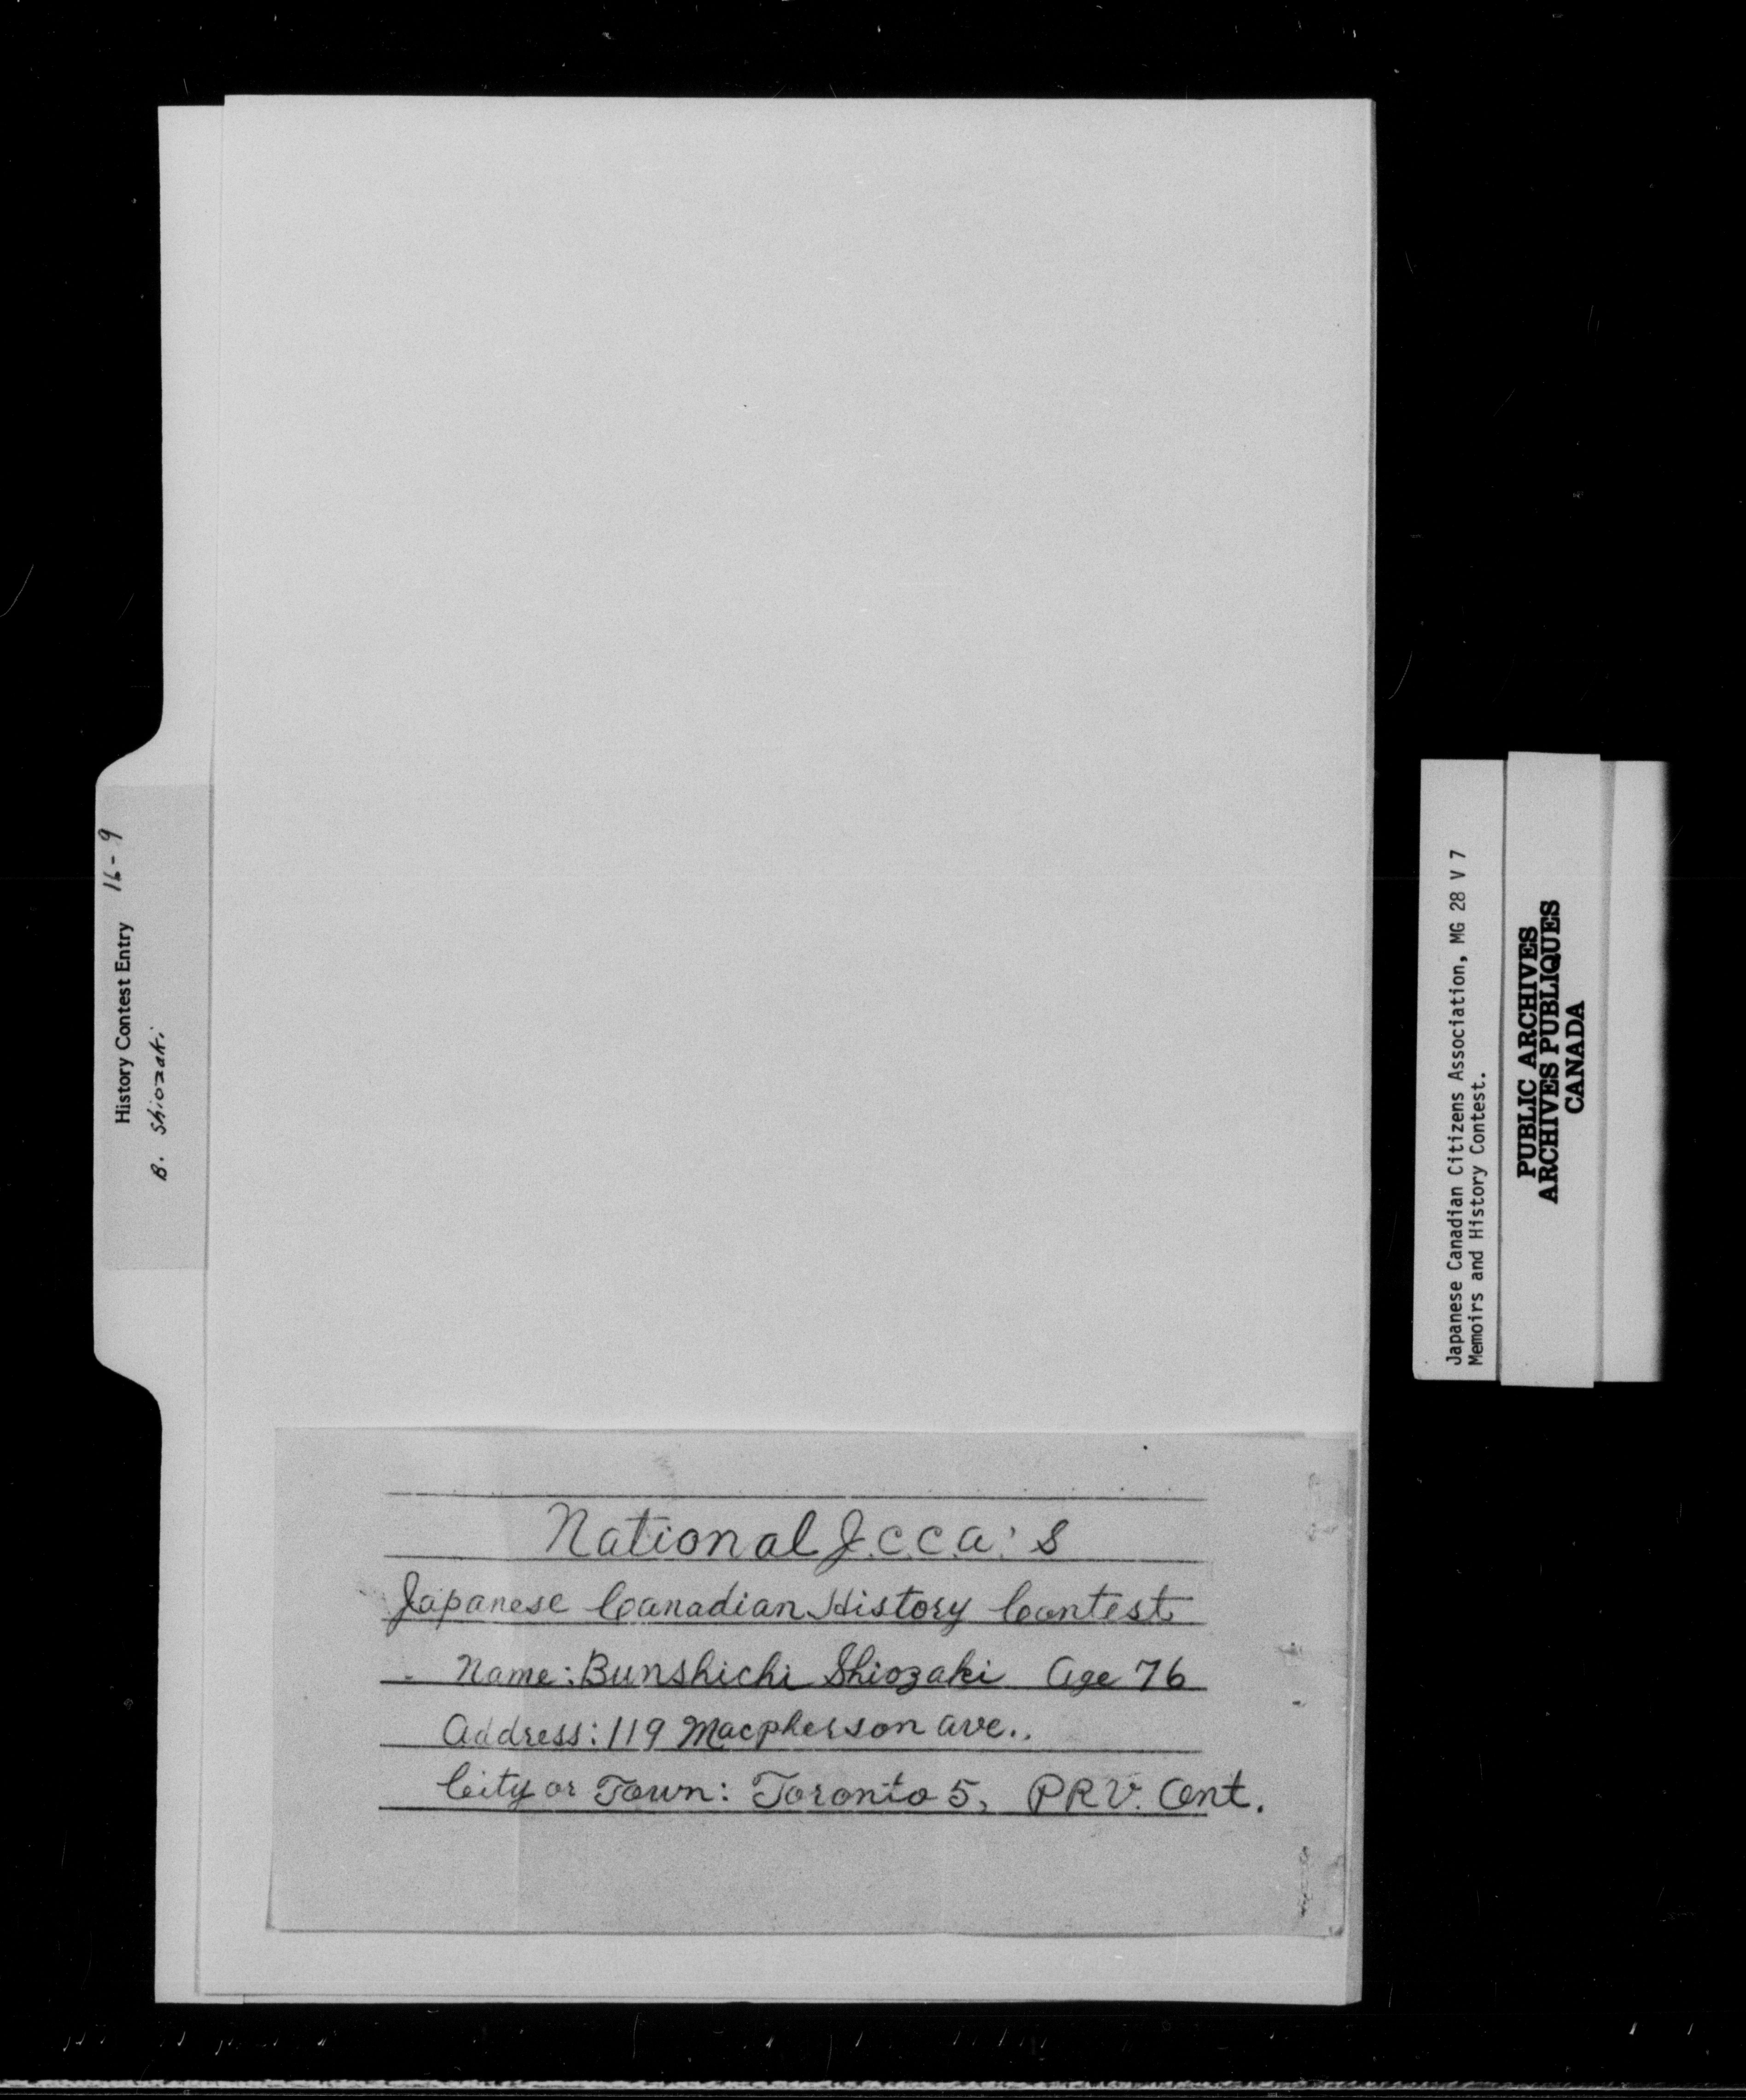 History Contest Entry 16-9
B. Shiozaki
National J.C.C.A.'s
Japanese Canadian History Contest
Name: Bunshichi Shiozaki Age 76
Address: 119 Macpherson Ave..
City or Town: Toronto 5, PRV. Ont.
Japanese Canadian Citizens Association, MG 28 V 7
Memoirs and History Contest.
PUBLIC ARCHIVES
ARCHIVES PUBLIQUES
CANADA